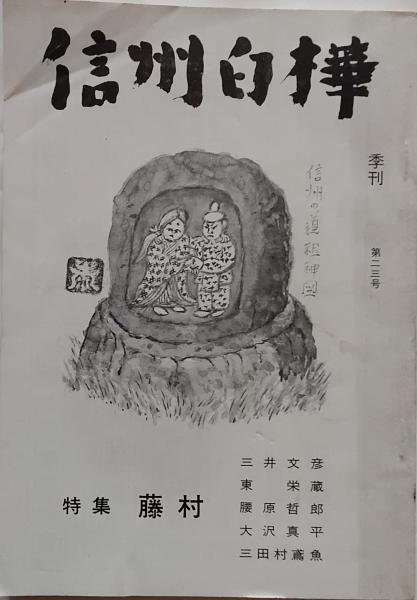 信州白樺
季刊
第二三号
信州の道祖神図
特集 藤村
三井文彦
東栄蔵
腰原哲郎
大沢真平
三田村鳶魚